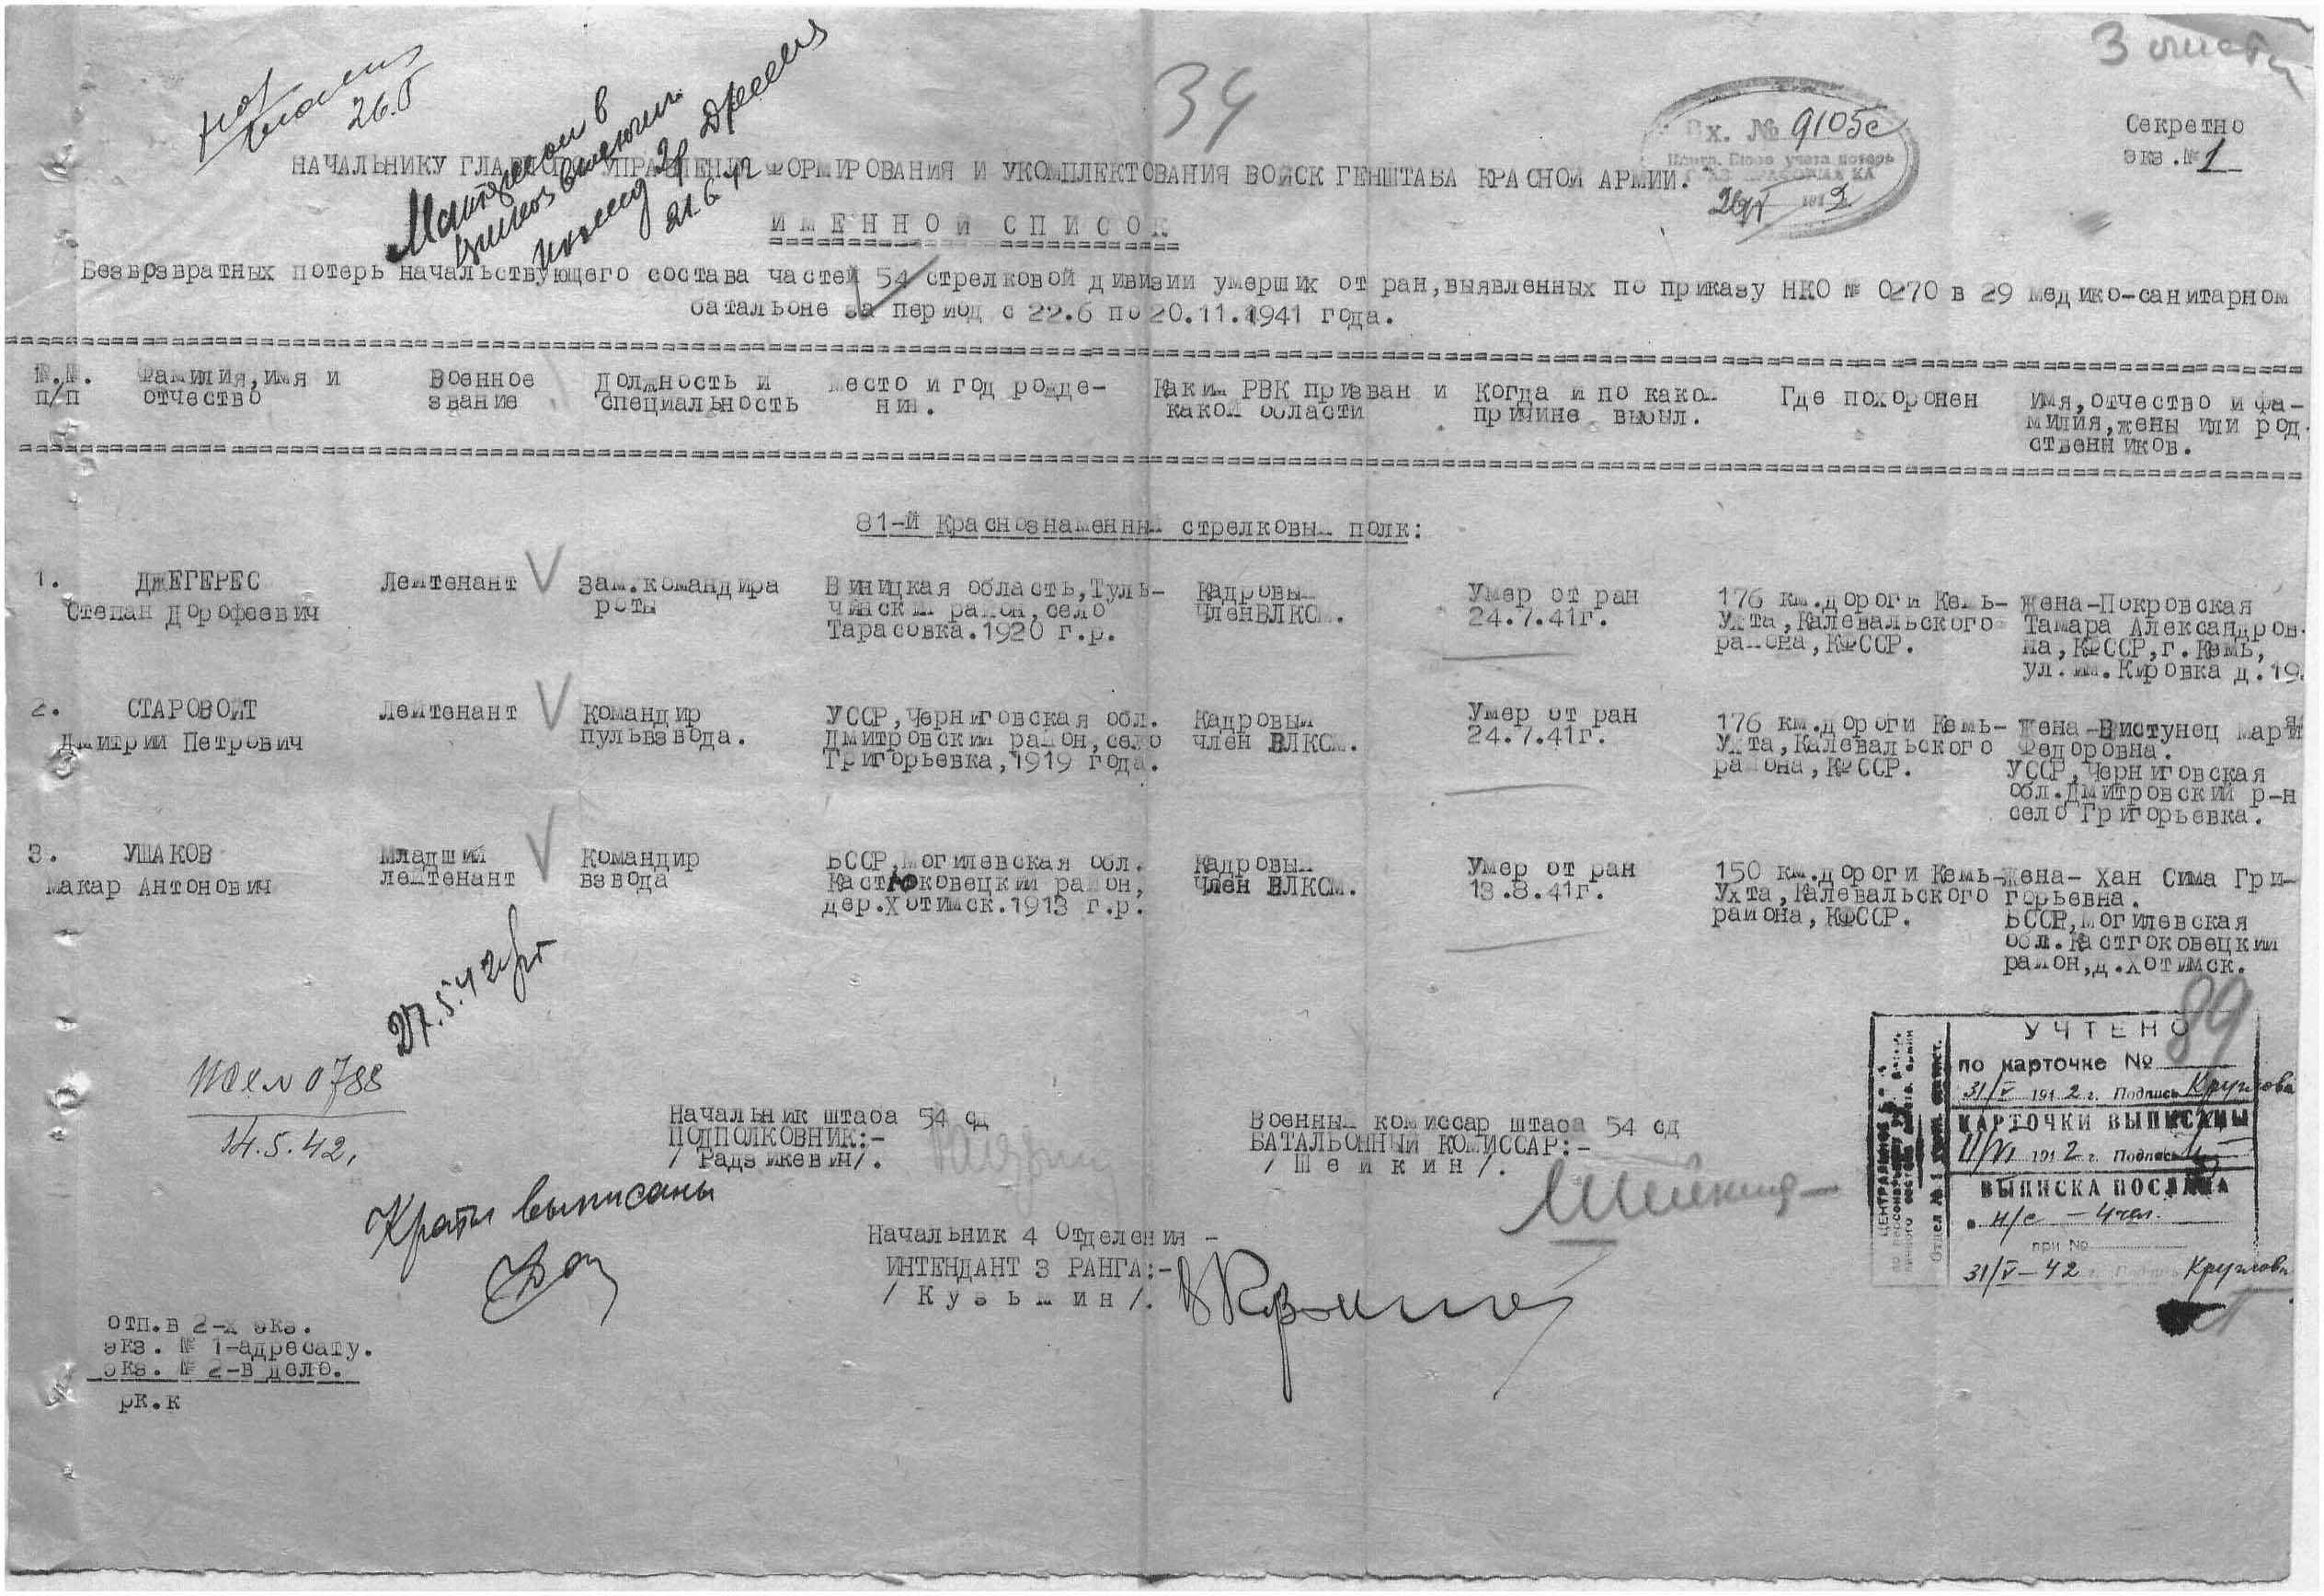 3 листа
34
26.5
Вх. № 9105с
Секретно
экз.№ 1
НАЧАЛЬНИКУ ГЛАВНОГО УПРАВЛЕНИЯ ФОРМИРОВАНИЯ И УКОМПЛЕКТОВАНИЯ ВОЙСК ГЕНШТАБА КРАСНОЙ АРМИИ.
21.6.42
ИМЕННОЙ СПИСОК
Безвозвратных потерь начальствующего состава частей 54 стрелковой дивизии умерших от ран,выявленных по приказу НКО № 0270 в 29 медико-санитарном
батальоне за период с 22.6 по 20.11.1941 года.
№.№. п/п
Фамилия,имя и отчество
Военное звание
Должность и специальность
Место и год рожде-
нии.
Каким РВК призван и
какой области
Когда и по какой
причине выбыл.
Где похоронен
Имя,отчество и фа-
милия,жены или род-
ственников.
81-й Краснознаменный стрелковый полк:
1. ДЖЕГЕРЕС
Степан Дорофеевич
Лейтенант
Зам.командира
роты
Виницкая область,Туль-
чинский район,село
Тарасовка.1920 г.р.
Кадровый
членВЛКСМ.
Умер от ран
24.7.41г.
176 км.дороги Кемь-
Ухта,Калевальского
района,КФССР.
Жена-Покровская
Тамара Александров-
на,КФССР,г.Кемь,
ул.им.Кировка д.19.
2. СТАРОВОЙТ
Дмитрий Петрович
Лейтенант
Командир
пульвзвода.
УССР,Черниговская обл.
Дмитровский район,село
Григорьевка,1919 года.
Кадровый
член ВЛКСМ.
Умер от ран
24.7.41г.
176 км.дороги Кемь-
Ухта,Калевальского
района,КФССР.
Жена-Вистунец Мария
Федоровна.
УССР,Черниговская
обл.Дмитровский р-н
село Григорьевка.
3. УШАКОВ
Макар Антонович
Младший
лейтенант
Командир
взвода
БССР,Могилевская обл.
Кастюковецкий район,
дер.Хотимск.1913 г.р.
Кадровый
Член ВЛКСМ.
Умер от ран
13.8.41г.
150 км.дороги Кемь-
Ухта,Калевальского
района,КФССР.
Жена- Хан Сима Гри-
горьевна.
БССР,Могилевская
обл.Кастгоковецкий
район,д.Хотимск.
27.5.42
0788
14.5.42.
Начальник штаба 54 сд
ПОДПОЛКОВНИК:-
/ Радзикевич/.
Военный комиссар штаба 54 сд
БАТАЛЬОННЫЙ КОМИССАР:-
/ Шейкин /.
Шейкин
выписаны
Начальник 4 Отделения -
ИНТЕНДАНТ 3 РАНГА:-
/ Кузьмин /.
89
УЧТЕНО
по карточке №
31/V 1942 г. Подпись Круглова
КАРТОЧКИ ВЫПИСАНЫ
11/VI 1942 г. Подпись
ВЫПИСКА ПОСЛАНА
н/с — 4 чел.
при №
31/V-42 г. Подпись Круглова
Отп.в 2-х экз.
экз. № 1-адресату.
экз. № 2-в дело.
рк.к